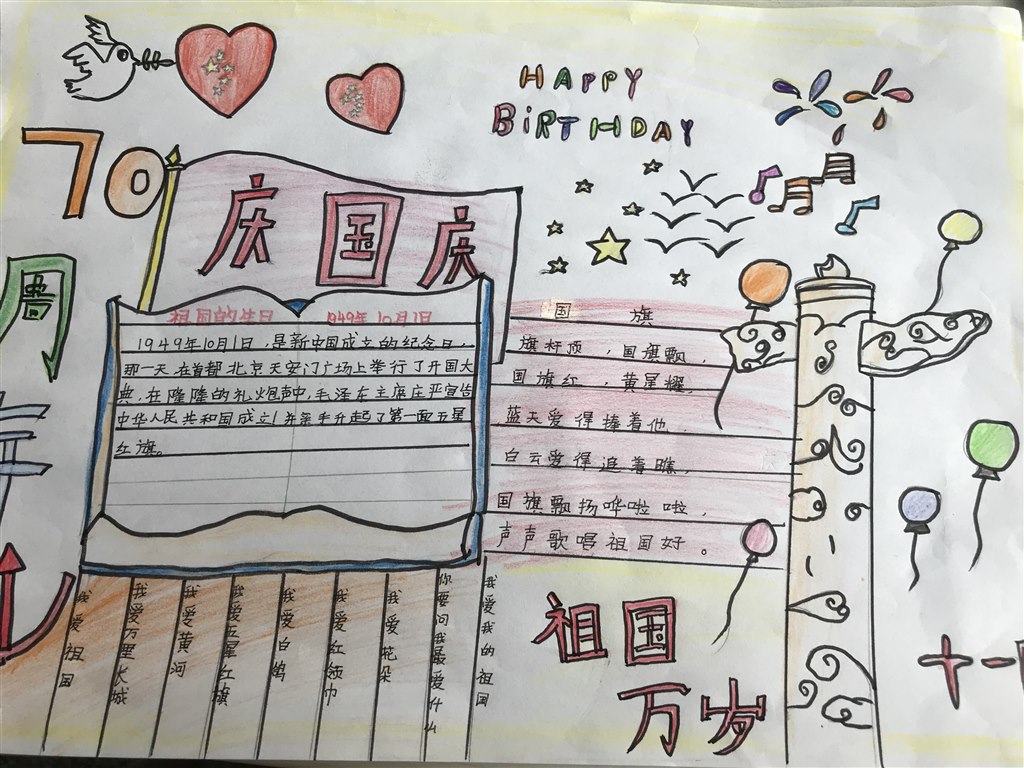 HAPPY
BIRTHDAY
70
周年
庆国庆
祖国的生日 1949年10月1日
1949年10月1日,是新中国成立的纪念日..
那一天在首都北京天安门广场上举行了开国大
典,在隆隆的礼炮声中,毛泽东主席庄严宣告
中华人民共和国成立!并亲手升起了第一面五星
红旗。
国 旗
旗杆顶,国旗飘,
国旗红,黄星耀,
蓝天爱得捧着他,
白云爱得追着瞧,
国旗飘扬哗啦啦,
声声歌唱祖国好。
我爱祖国
我爱万里长城
我爱黄河
我爱五星红旗
我爱白鸽
我爱红领巾
我爱花朵
你要问我最爱什么
我爱我的祖国
祖国
万岁
十一